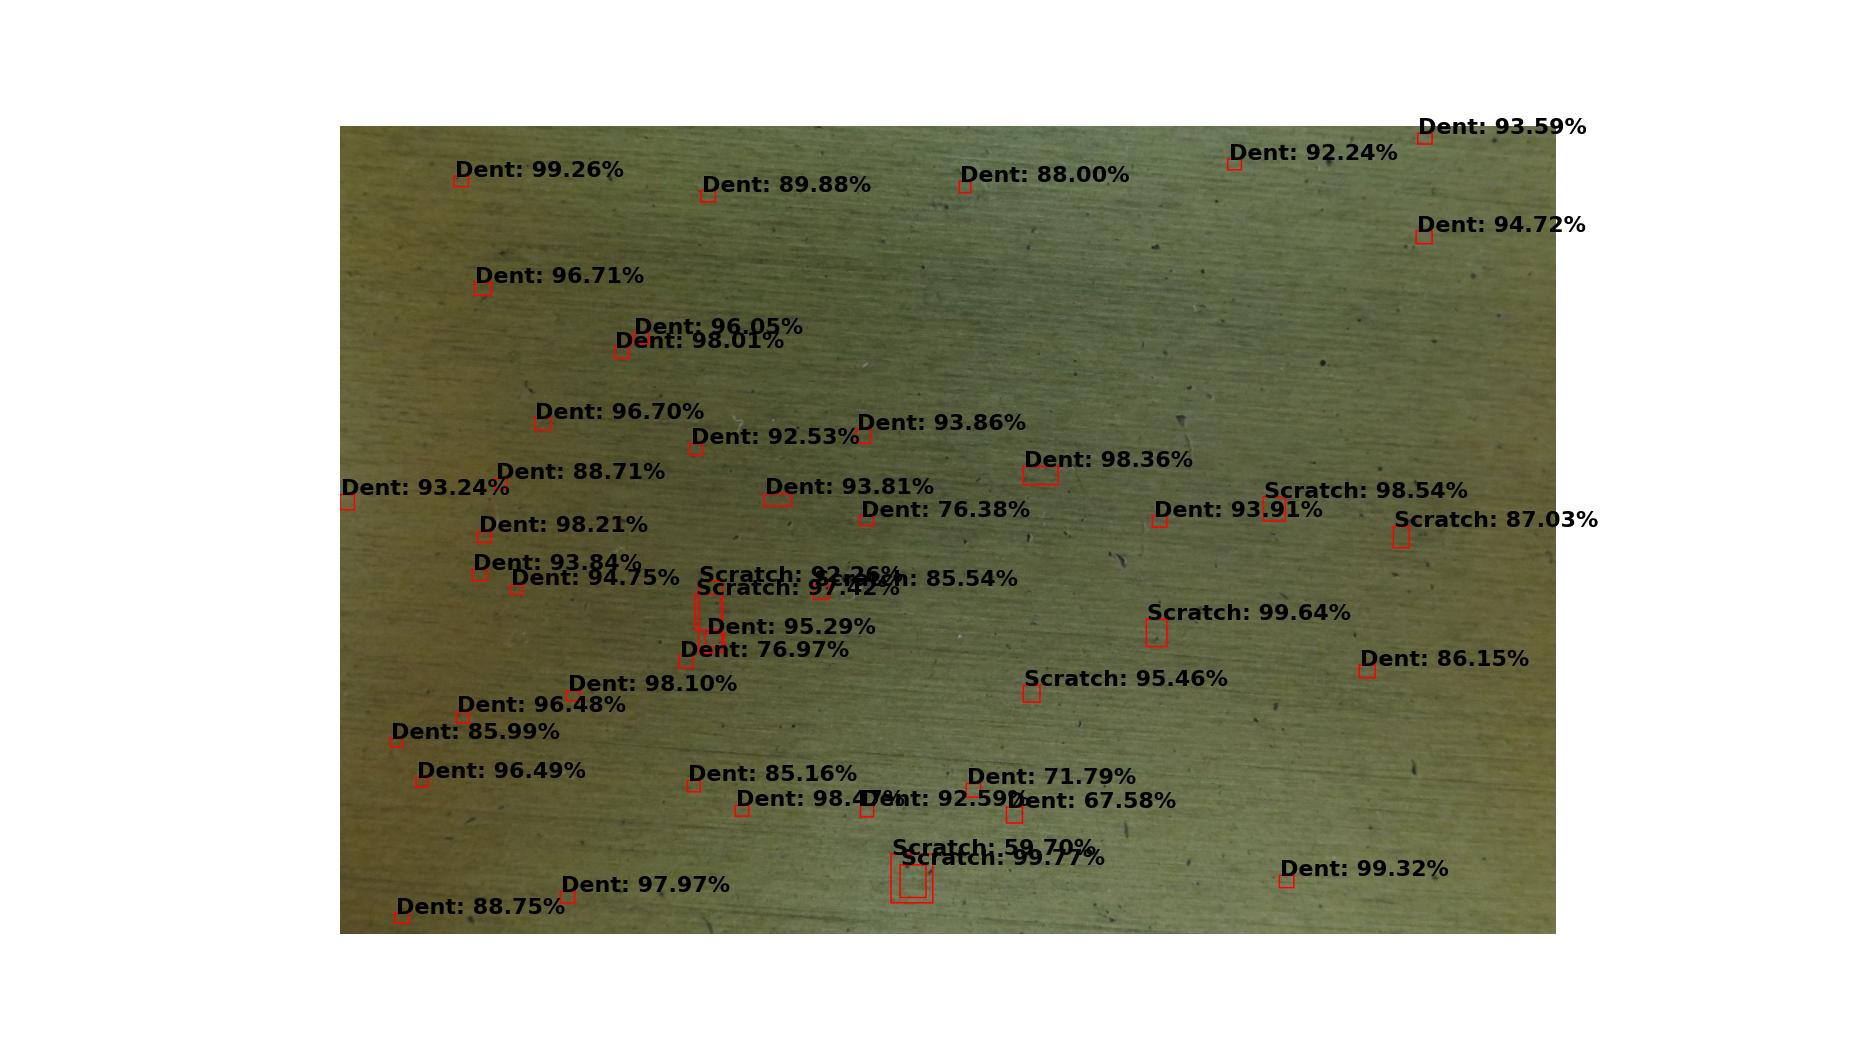 Dent: 93.59%
Dent: 92.24%
Dent: 99.26%
Dent: 88.00%
Dent: 89.88%
Dent: 94.72%
Dent: 96.71%
Dent: 96.05%
Dent: 98.01%
Dent: 96.70%
Dent: 93.86%
Dent: 92.53%
Dent: 98.36%
Dent: 88.71%
Dent: 93.24%
Dent: 93.81%
Scratch: 98.54%
Dent: 76.38%
Dent: 93.91%
Scratch: 87.03%
Dent: 98.21%
Dent: 93.84%
Dent: 94.75%
Scratch: 92.26%
Scratch: 85.54%
Scratch: 97.42%
Scratch: 99.64%
Dent: 95.29%
Dent: 76.97%
Dent: 86.15%
Scratch: 95.46%
Dent: 98.10%
Dent: 96.48%
Dent: 85.99%
Dent: 96.49%
Dent: 85.16%
Dent: 71.79%
Dent: 98.47%
Dent: 92.59%
Dent: 67.58%
Scratch: 59.70%
Scratch: 99.77%
Dent: 99.32%
Dent: 97.97%
Dent: 88.75%